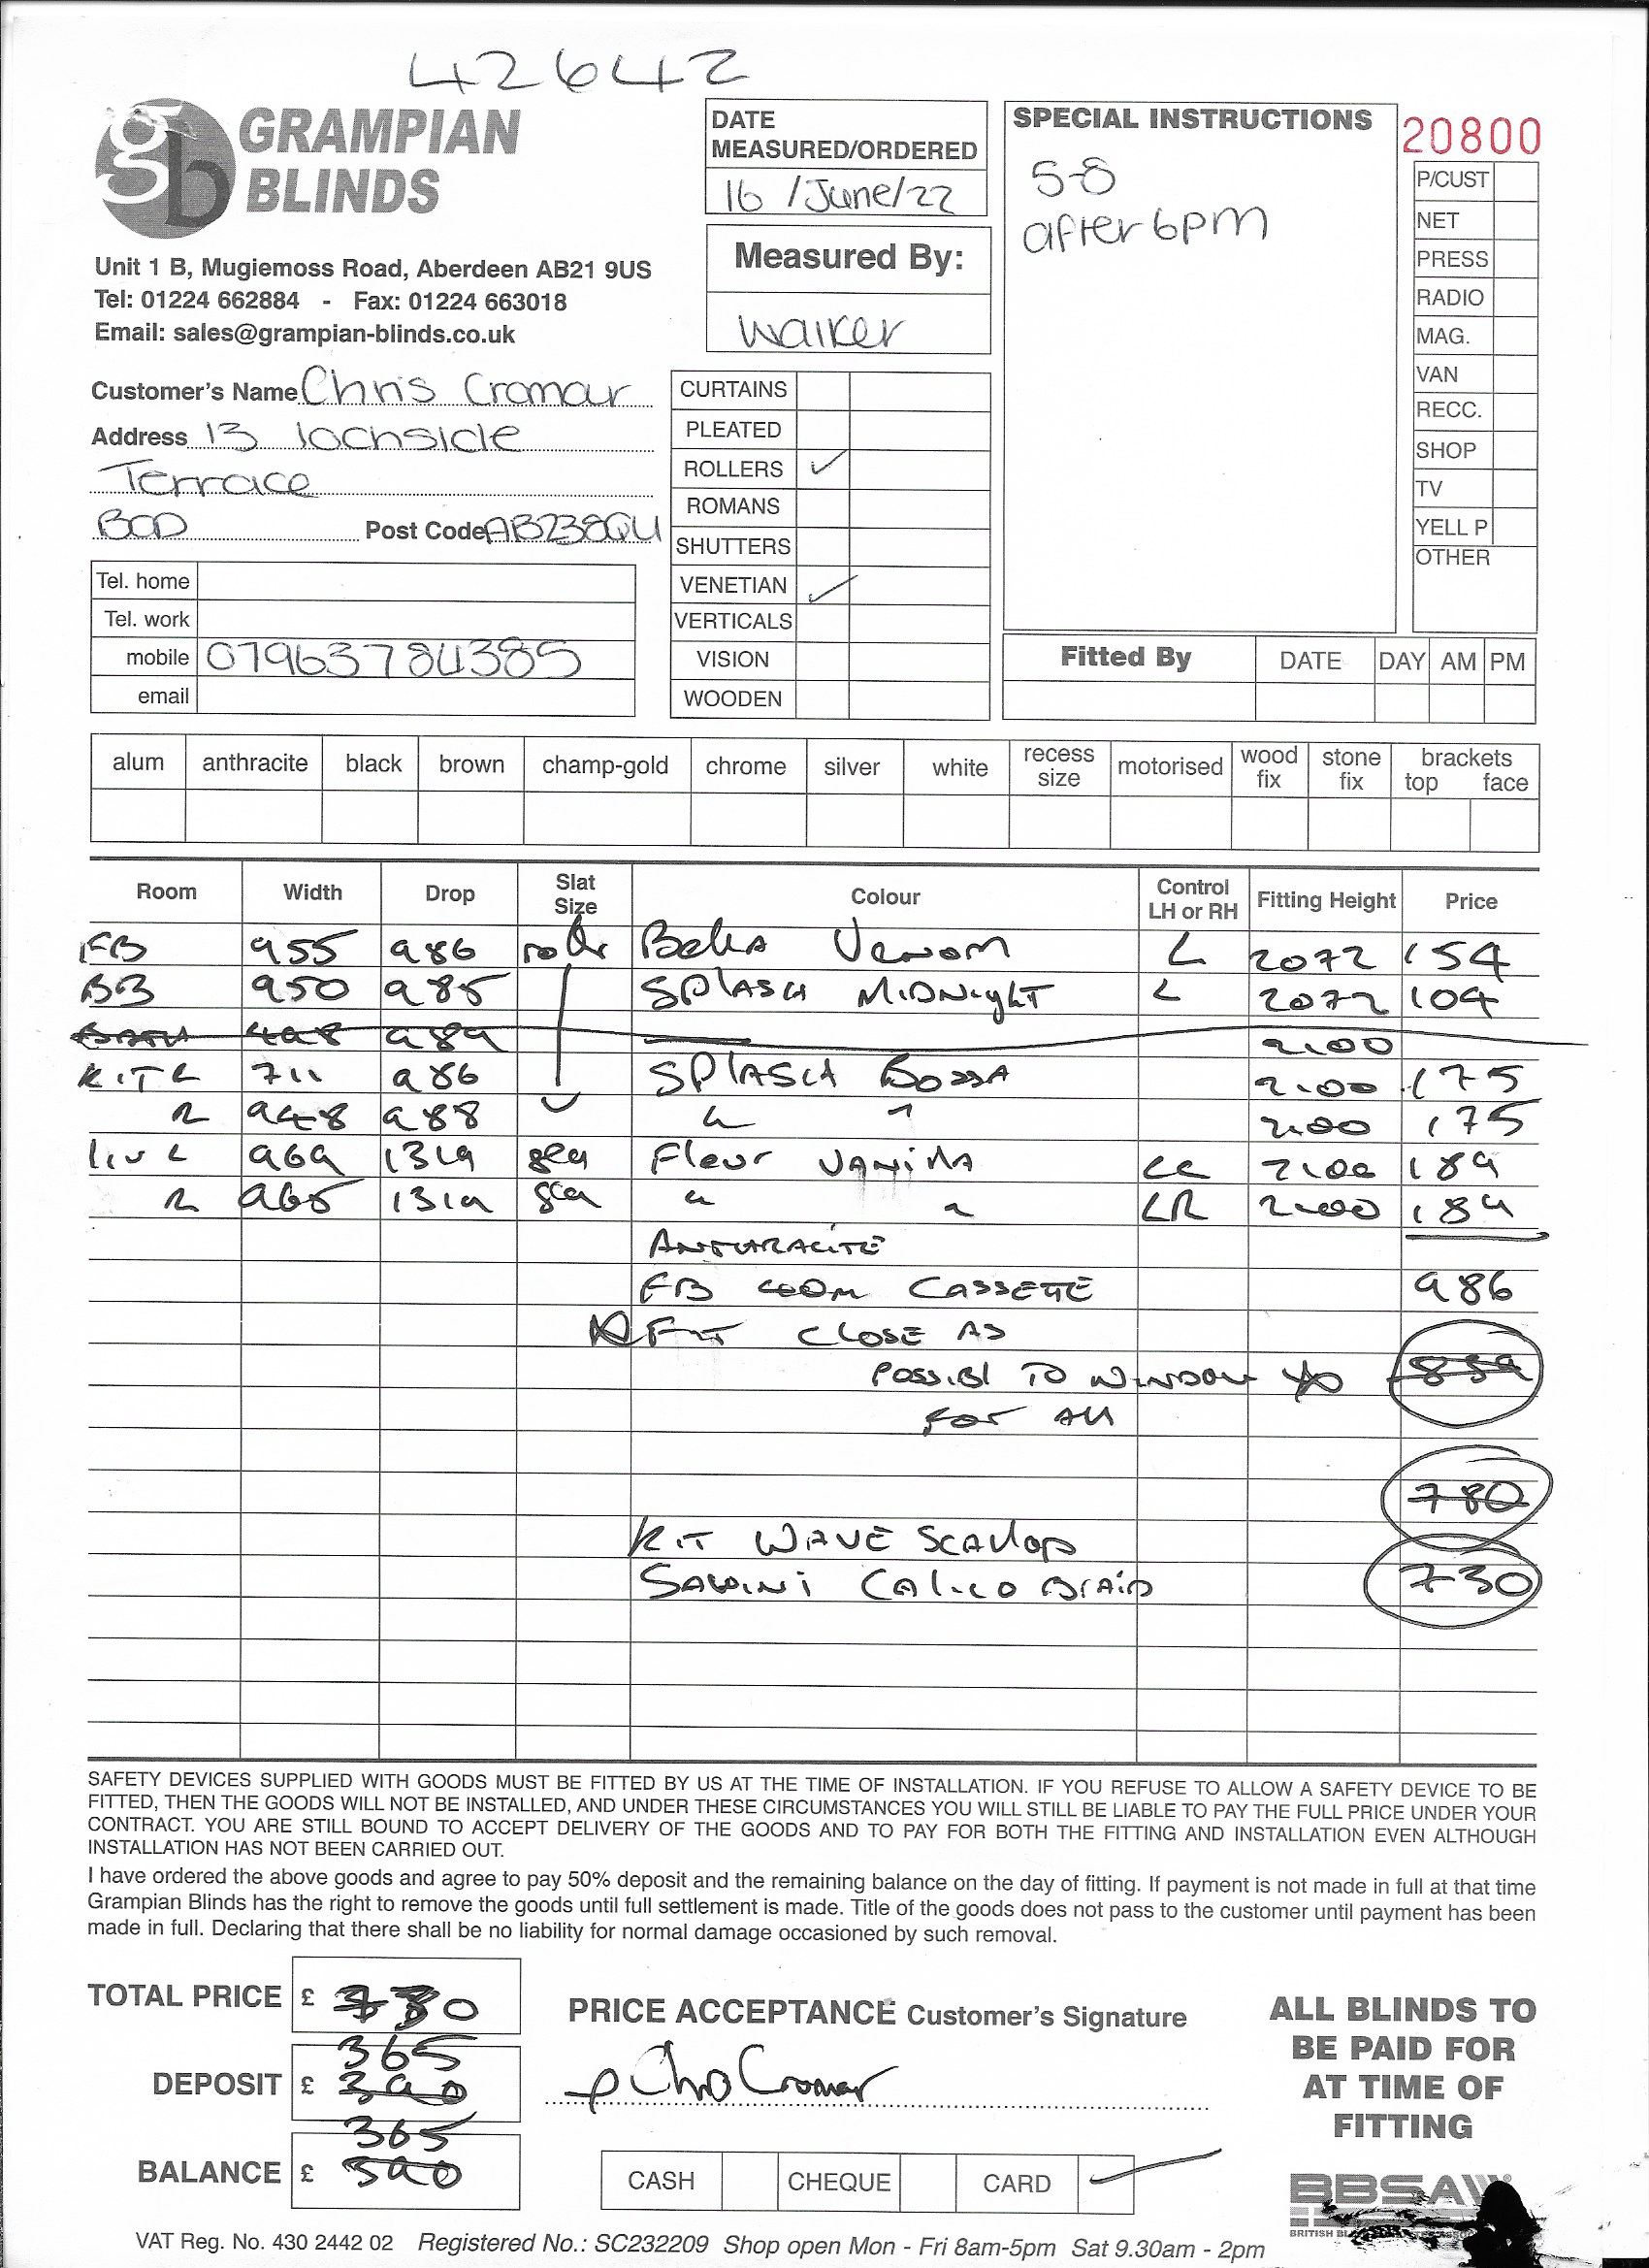 42642
GRAMPIAN
BLINDS
Unit 1 B, Mugiemoss Road, Aberdeen AB21 9US
Tel: 01224 662884 - Fax: 01224 663018
Email: sales@grampian-blinds.co.uk
DATE
MEASURED/ORDERED
16/June/22
Measured By:
Walker
SPECIAL INSTRUCTIONS
5-8
after 6pm
20800
P/CUST
NET
PRESS
RADIO
MAG.
VAN
RECC.
SHOP
TV
YELL P
OTHER
Customer's Name Chris Cromar
Address 13 lochside
Terrace
BOD Post Code AB238QU
Tel. home
Tel. work
mobile 07963784385
email
CURTAINS
PLEATED
ROLLERS ✓
ROMANS
SHUTTERS
VENETIAN ✓
VERTICALS
VISION
WOODEN
Fitted By DATE DAY AM PM
alum anthracite black brown champ-gold chrome silver white recess size motorised wood fix stone fix brackets top face
Room Width Drop Slat Size Colour Control LH or RH Fitting Height Price
FB 955 986 Venom L 2072 154
BB 950 985 SPLASH MIDNIGHT L 2072 104
498 989 2100
KIT L 711 986 SPLASH BOSSA 2100 175
R 948 988 " " 2100 175
liv L 969 1319 Fleur VANillA 2100 189
R 965 1319 " " LR 2100 189
ANTHRACITE
FB CASSETTE 986
FIT CLOSE AS
POSSIBl TO WINDOW 889
FOR All
780
KIT WAVE SCAllOP
CAlICO BRAID 730
SAFETY DEVICES SUPPLIED WITH GOODS MUST BE FITTED BY US AT THE TIME OF INSTALLATION. IF YOU REFUSE TO ALLOW A SAFETY DEVICE TO BE
FITTED, THEN THE GOODS WILL NOT BE INSTALLED, AND UNDER THESE CIRCUMSTANCES YOU WILL STILL BE LIABLE TO PAY THE FULL PRICE UNDER YOUR
CONTRACT. YOU ARE STILL BOUND TO ACCEPT DELIVERY OF THE GOODS AND TO PAY FOR BOTH THE FITTING AND INSTALLATION EVEN ALTHOUGH
INSTALLATION HAS NOT BEEN CARRIED OUT.
I have ordered the above goods and agree to pay 50% deposit and the remaining balance on the day of fitting. If payment is not made in full at that time
Grampian Blinds has the right to remove the goods until full settlement is made. Title of the goods does not pass to the customer until payment has been
made in full. Declaring that there shall be no liability for normal damage occasioned by such removal.
TOTAL PRICE £ 730
365
DEPOSIT £ 390
365
BALANCE £ 390
PRICE ACCEPTANCE Customer's Signature
Chris Cromar
CASH CHEQUE CARD ✓
ALL BLINDS TO
BE PAID FOR
AT TIME OF
FITTING
BBSA
VAT Reg. No. 430 2442 02 Registered No.: SC232209 Shop open Mon - Fri 8am-5pm Sat 9.30am - 2pm